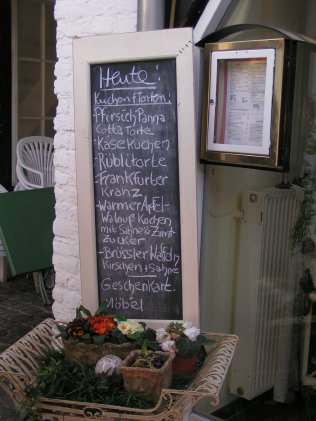 Heute!
Kuchen + Torten:
- Pfirsich Panna
Cotta Torte
- Käsekuchen
- Rüblitorte
- Frankfurter
Kranz
- Warmer Apfel-
Walnuß Kuchen
mit Sahne & Zimt-
zucker
- Brüssler Waffeln
Kirschen + Sahne
Geschenkart.
Möbel